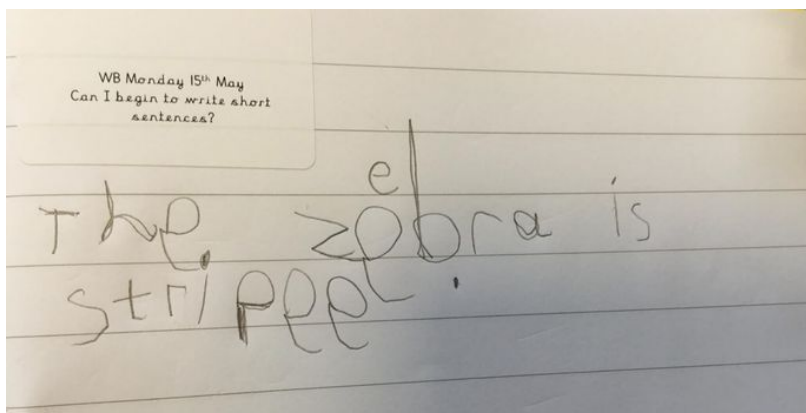 WB Monday 15th May
Can I begin to write short
sentences?
e
The. zebra is
stripee.